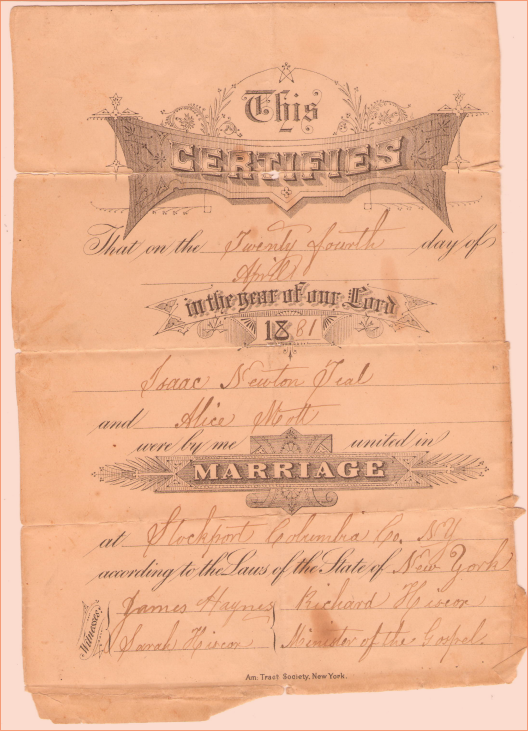 This
CERTIFIES
That on the Twenty fourth day of
April
in the year of our Lord
1881
Isaac Newton Teal
and Alice Mott
were by me united in
MARRIAGE
at Stockport Columbia Co. NY
according to the Laws of the State of New York
Witnesses
James Haynes Richard Hiscox
Sarah Hiscox Minister of the Gospel.
Am. Tract Society, New York.